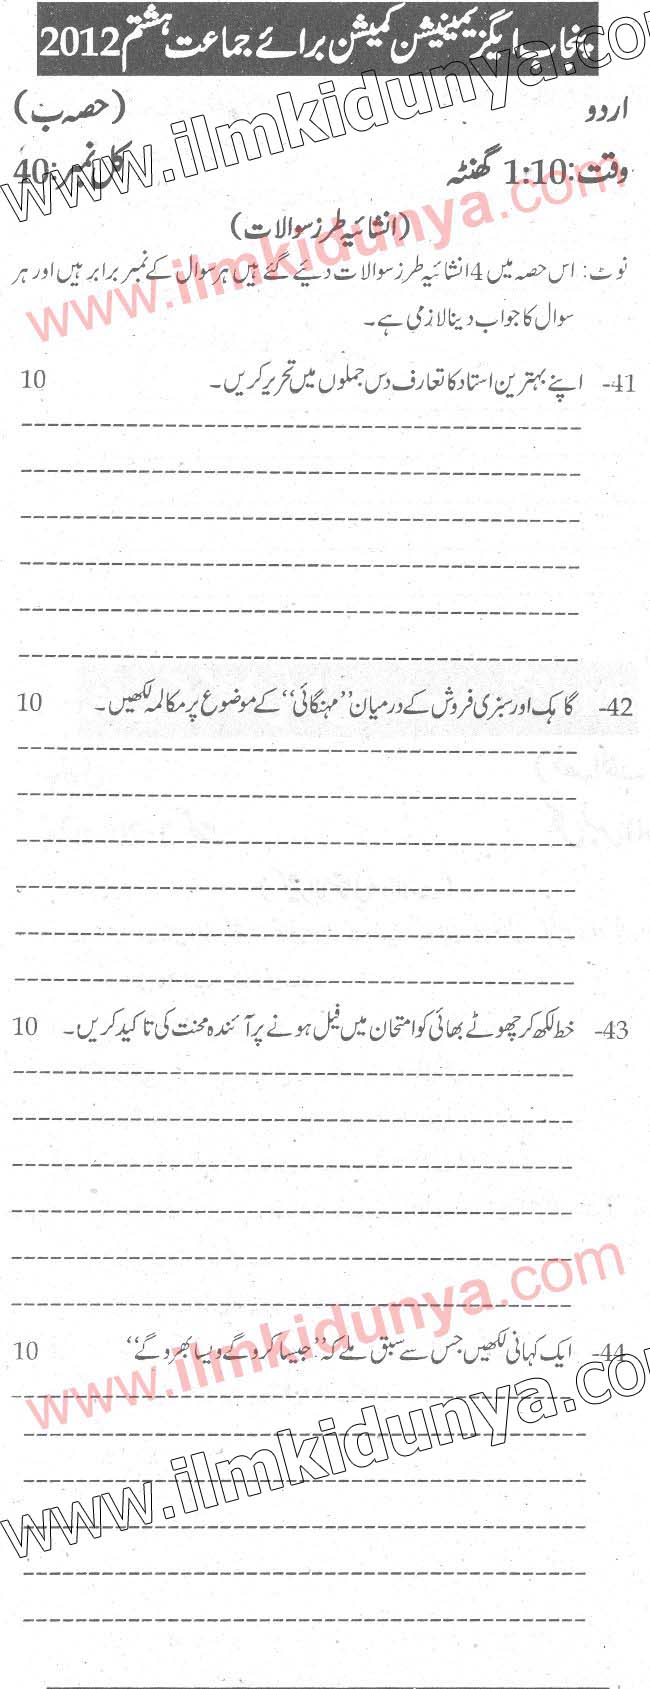 پنجاب ایگزیمینیشن کمیشن برائے جماعت ہشتم 2012
اردو (حصہ ب)
وقت: 1:10 گھنٹہ کل نمبر: 40
(انشائیہ طرز سوالات)
نوٹ: اس حصہ میں 4 انشائیہ طرز سوالات دیئے گئے ہیں ہر سوال کے نمبر برابر ہیں اور ہر
سوال کا جواب دینا لازمی ہے۔
41- اپنے بہترین استاد کا تعارف دس جملوں میں تحریر کریں۔ 10
42- گاہک اور سبزی فروش کے درمیان ’’مہنگائی‘‘ کے موضوع پر مکالمہ لکھیں۔ 10
43- خط لکھ کر چھوٹے بھائی کو امتحان میں فیل ہونے پر آئندہ محنت کی تاکید کریں۔ 10
44- ایک کہانی لکھیں جس سے سبق ملے کہ ’’جیسا کرو گے ویسا بھرو گے‘‘ 10
www.ilmkidunya.com
www.ilmkidunya.com
www.ilmkidunya.com
www.ilmkidunya.com